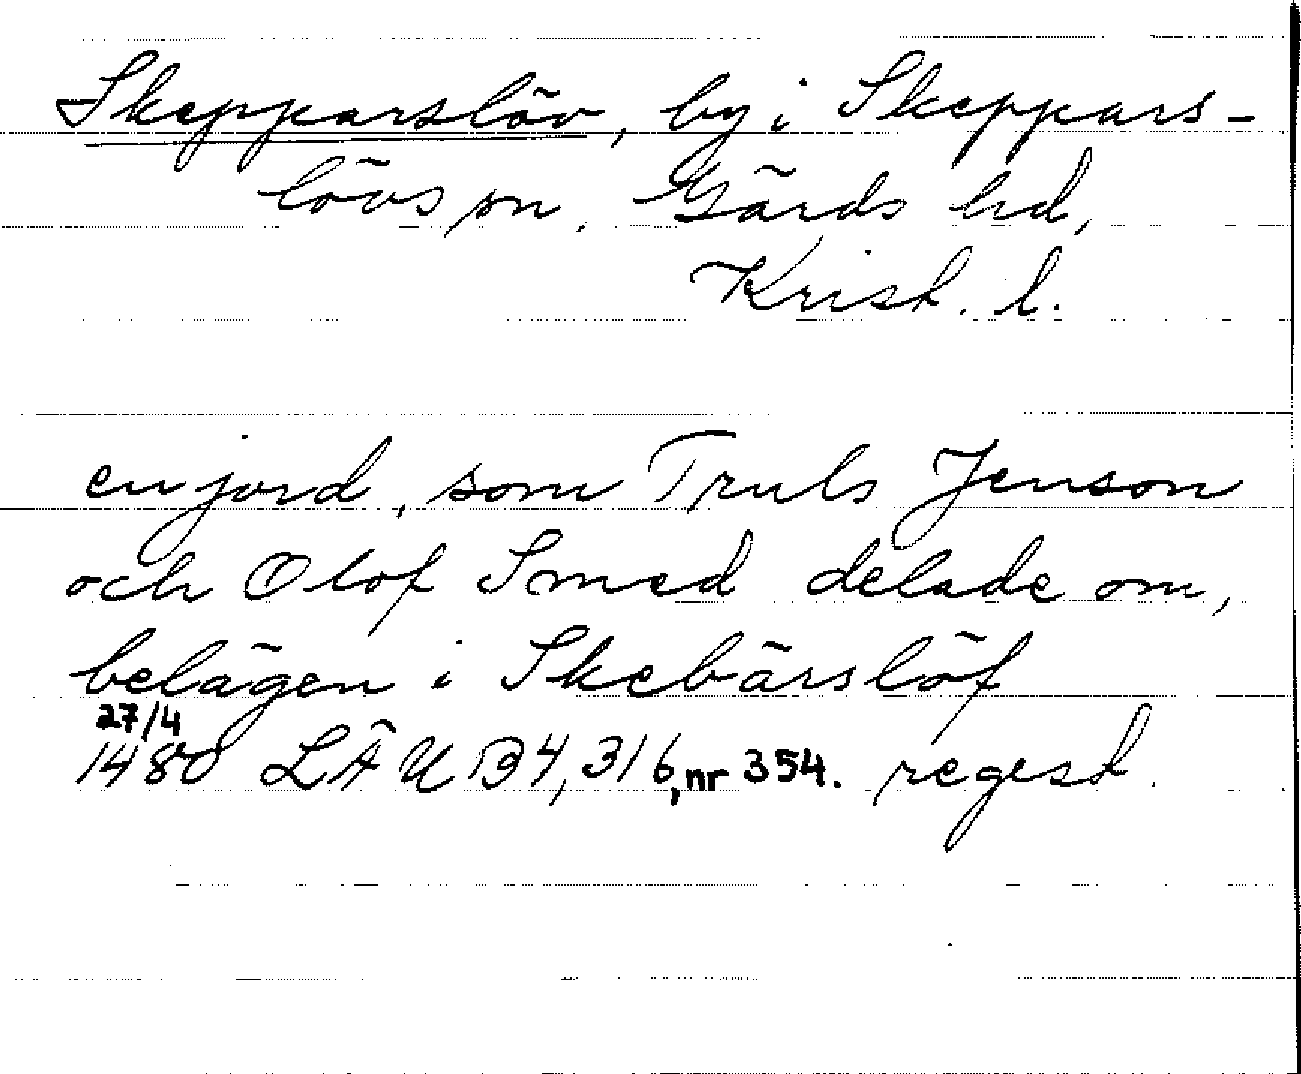 Skepparslöv, by i Skeppars-
lövs sn. Gärds hd,
Krist. l.
en jord, som Truls Jenson
och Olof Smed delade om,
belägen i Skebärslöf
27/4
1480 LÄUB 4, 316, nr 354. regest.